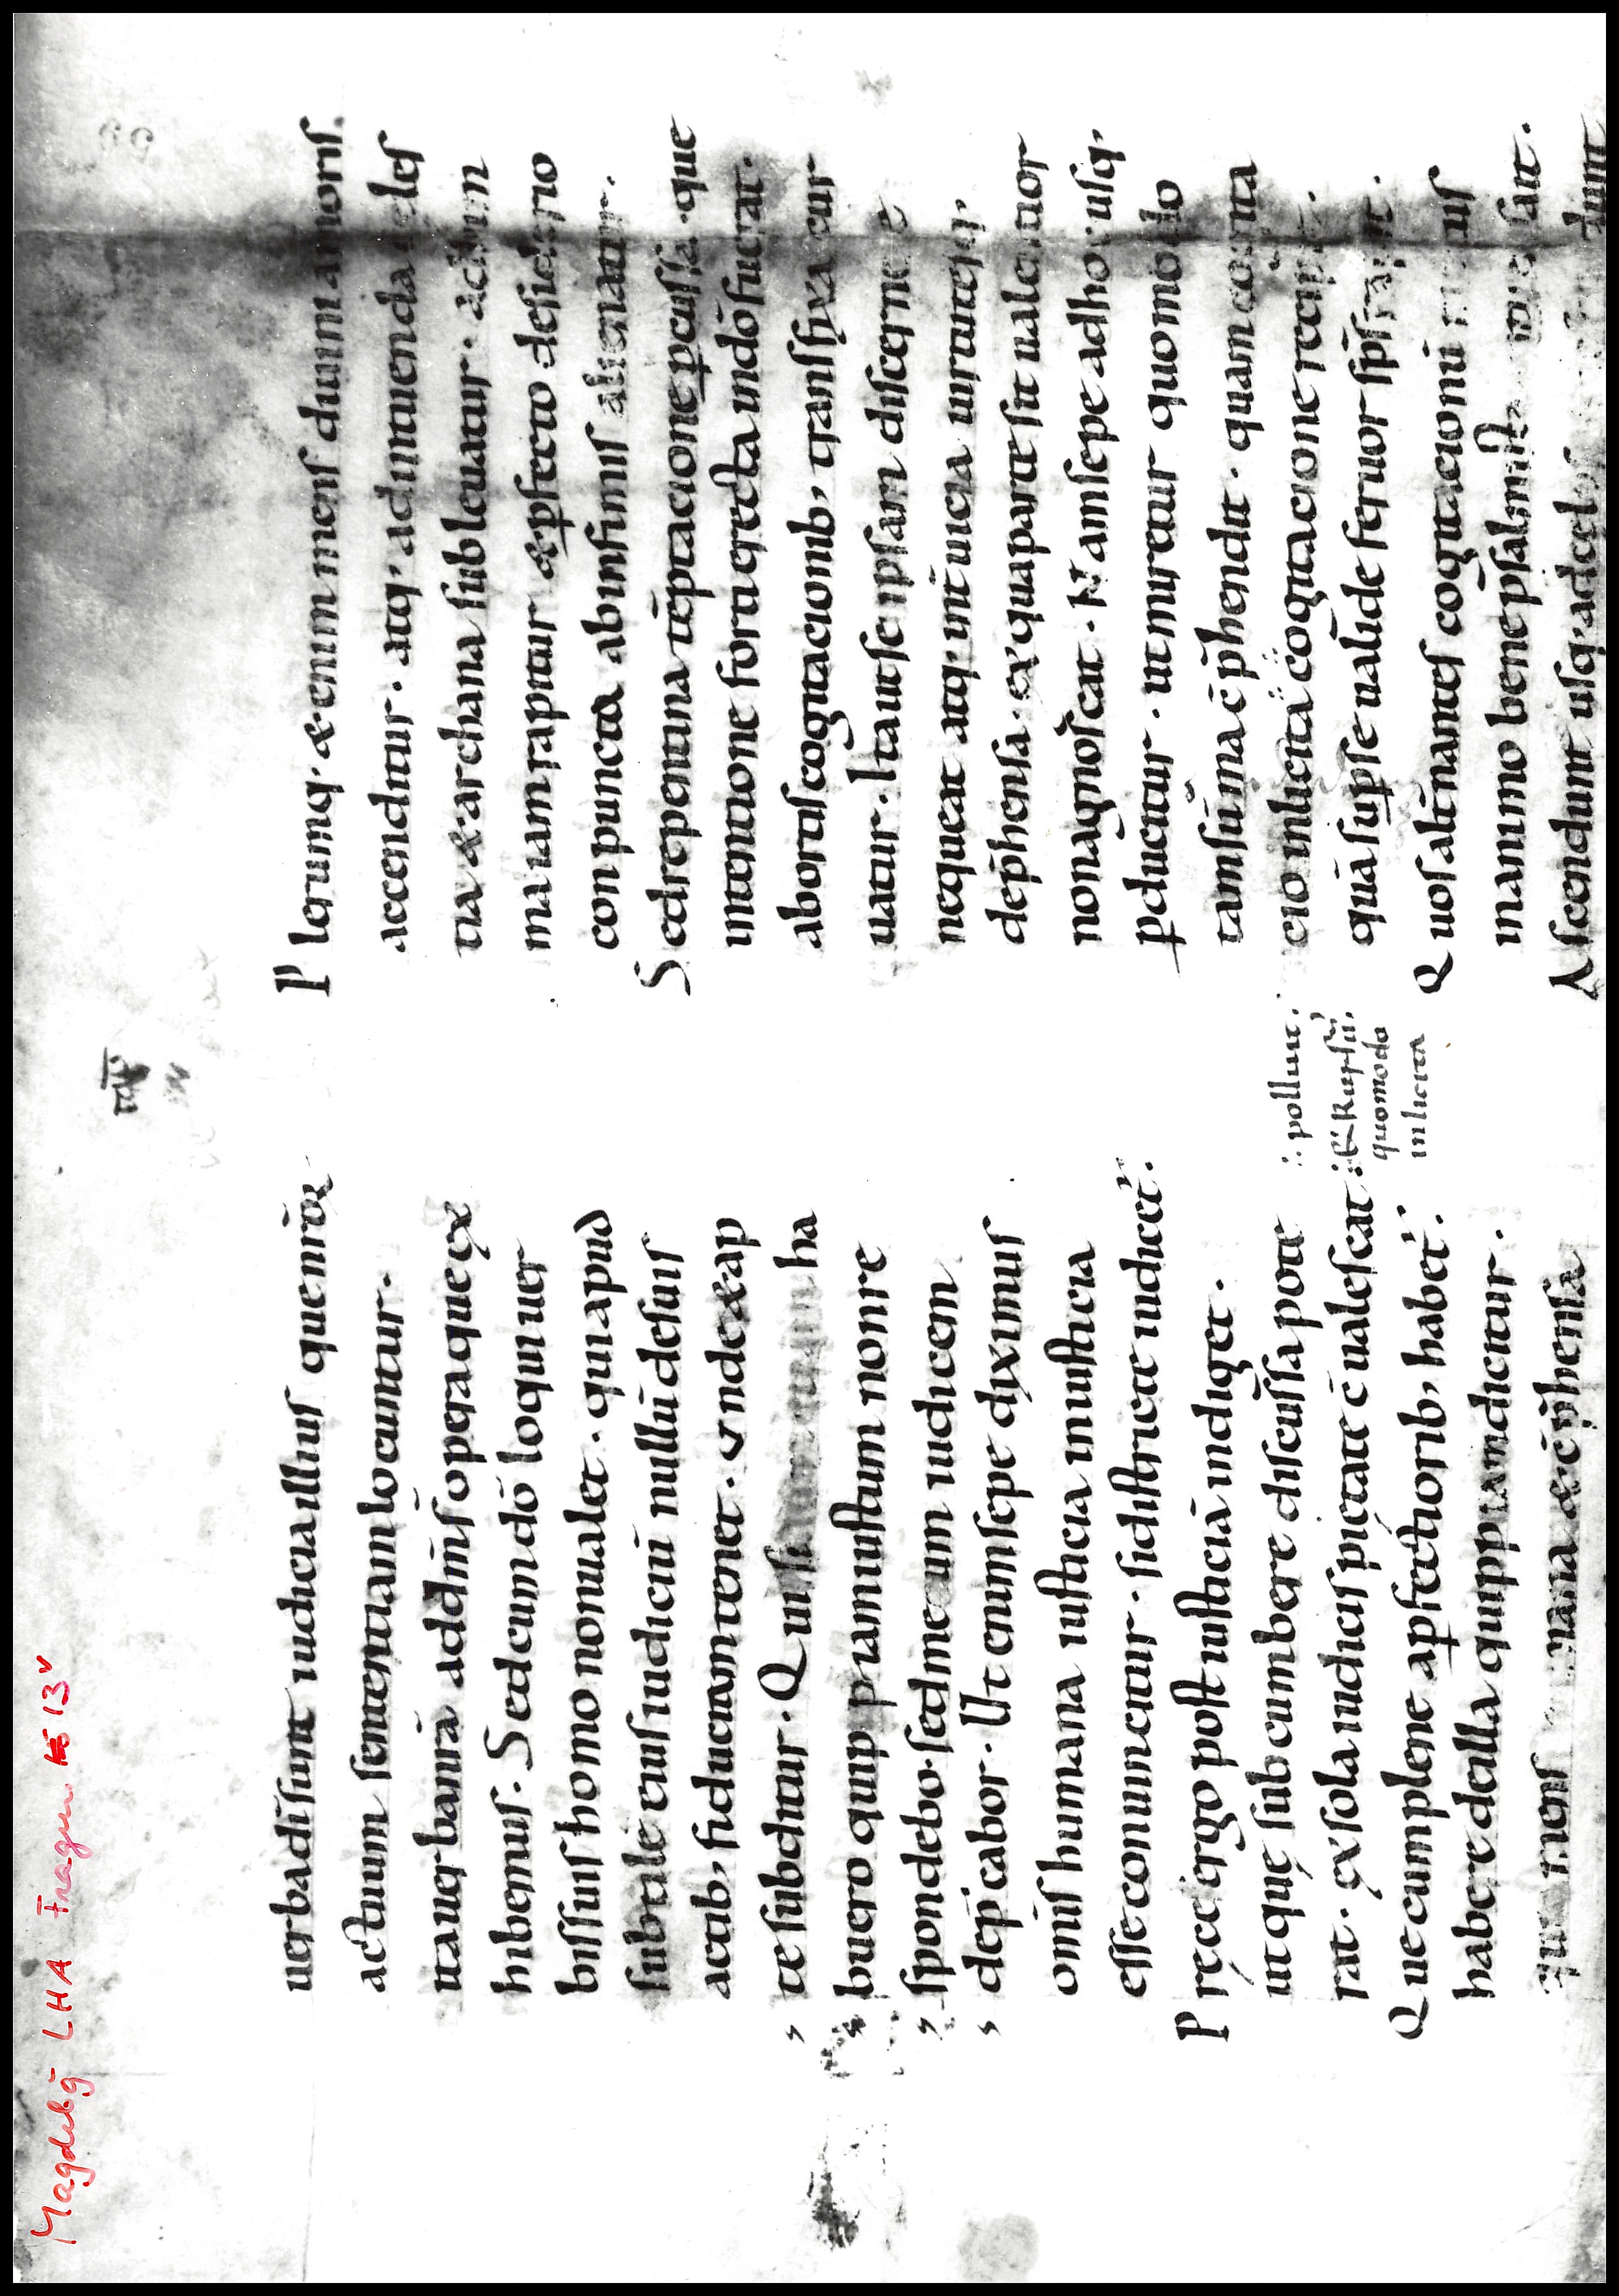 Magdebg LHA Fragm 13v
uerba disunt iudicia illius que nr̄ox
actuum sententiam locuntur.
uauer ba nr̄a ad dm̄s opera que ex
hibemus. Sed cum dō loqui uer
bis suis homo non ualet. quia apud
subtile eius iudiciū nullū de suis
actib; fiduciam tenet. Vnde & ap
te subditur. Qui si ha
buero quippiam iustum non re
spondebo. sed meum iudicem
dep̄cabor. Ut enim sepe diximus
om̄is humana iusticia iniusticia
esse conuincitur. si districte iudicet̄.
Prece ergo post iusticiā indiget.
ut quę subcumbere discussa pote
rat. ex sola iudicis pietate c̄ualescat
Que cum plene a ꝑfectiorib; habet̄.
habere de illa quippiam dicitur.
mens mana & c̄p̄hensa
pollunt.
& Rursū
quomodo
inlicita
Plerumq; & enim mens diuini amoris
accenditur. atq; ad intuenda les
tia & archana subleuatur. ad
ma iam rapitur & ꝑfecto desiderio
conpuncta ab infimis alienatur.
Sed repentina tēptacione ꝑcussa. que
intentione forti erecta in dō fuerat.
abortis cogitacionib; transfixa cur
uatur. Ita ut se ipsam discerne
nequeat atq; int̄ uicia uirtutesq;
dep̄hensa. ex qua parte sit ualentior
non agnoscat. Nam sepe ad hoc usq;
ꝑducitur. ut miretur quomodo
tam sūma c̄p̄hendit. quam cogita
cio inlicita cogitacione recipit.
quā suꝑ se ualide feruor sp̄s rapit.
Quos alt̄nantes cogitacionū
in animo bene psalmista
Ascendunt usq; ad celos